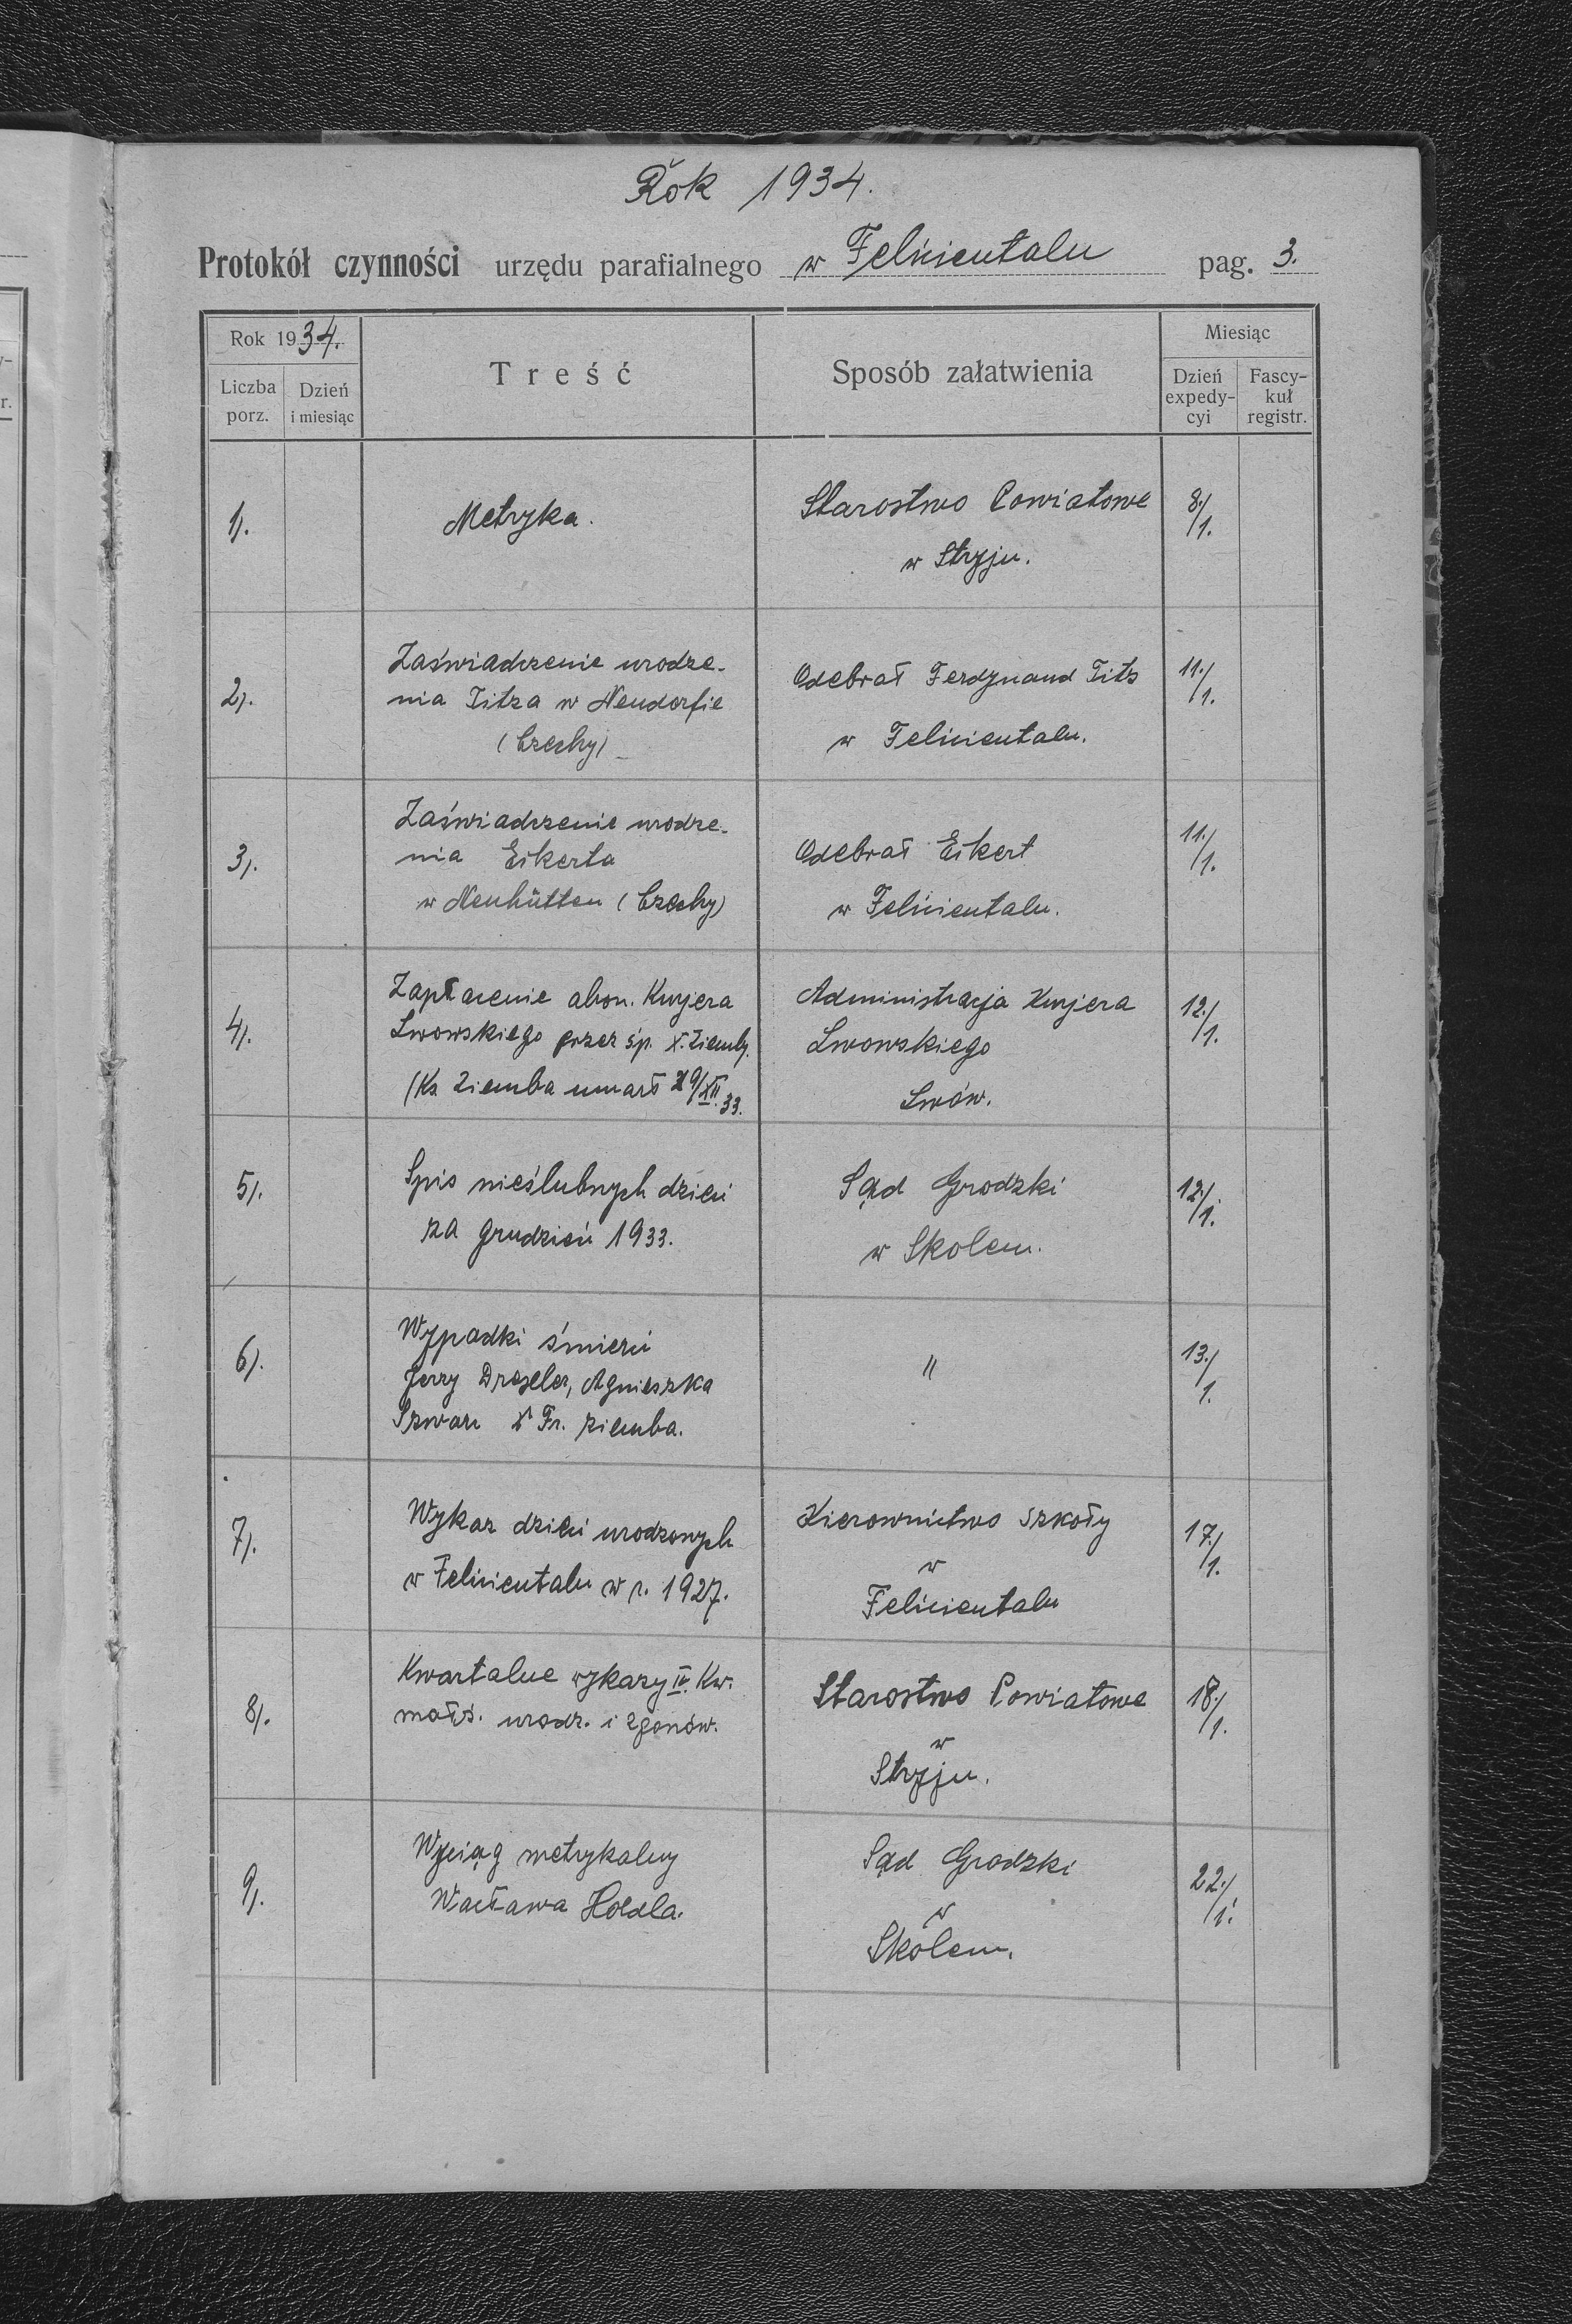 Rok 1934.
Protokół czynności urzędu parafialnego w Felicientalu pag. 3.
Rok 1934.
Liczba porz.
Dzień i miesiąc
Treść
Sposób załatwienia
Miesiąc
Dzień expedy-
cyi
Fascy-
kuł
registr.
1).
Metryka.
Starostwo Powiatowe
w Stryju.
8./1.
2).
Zaświadczenie urodze-
nia Titza w Neudorfie
(Czechy)
Odebrał Ferdynand Titz
w Felicientalu.
11./1.
3).
Zaświadczenie urodze-
nia Eikerta
w Neuhütten (Czechy)
Odebrał Eikert
w Felicientalu.
11./1.
4).
Zapłacenie abon. Kurjera
Lwowskiego przez śp. X. Ziemby.
(Ks Ziemba umarł 29/XII.33.
Administracja Kurjera
Lwowskiego
Lwów.
12./1.
5).
Spis nieślubnych dzieci
za grudzień 1933.
Sąd Grodzki
w Skolem.
12./1.
6).
Wypadki śmierci
Jerzy Drexler, Agnieszka
Szwarc X Fr. Ziemba.
"
13./1.
7).
Wykaz dzieci urodzonych
w Felicientalu w r. 1927.
Kierownictwo szkoły
w
Felicientalu
17./1.
8).
Kwartalne wykazy IV. Kw.
małż. urodz. i zgonów.
Starostwo Powiatowe
w
Stryju.
18./1.
9).
Wyciąg metrykalny
Wacława Hoedla.
Sąd Grodzki
w
Skolem.
22./1.